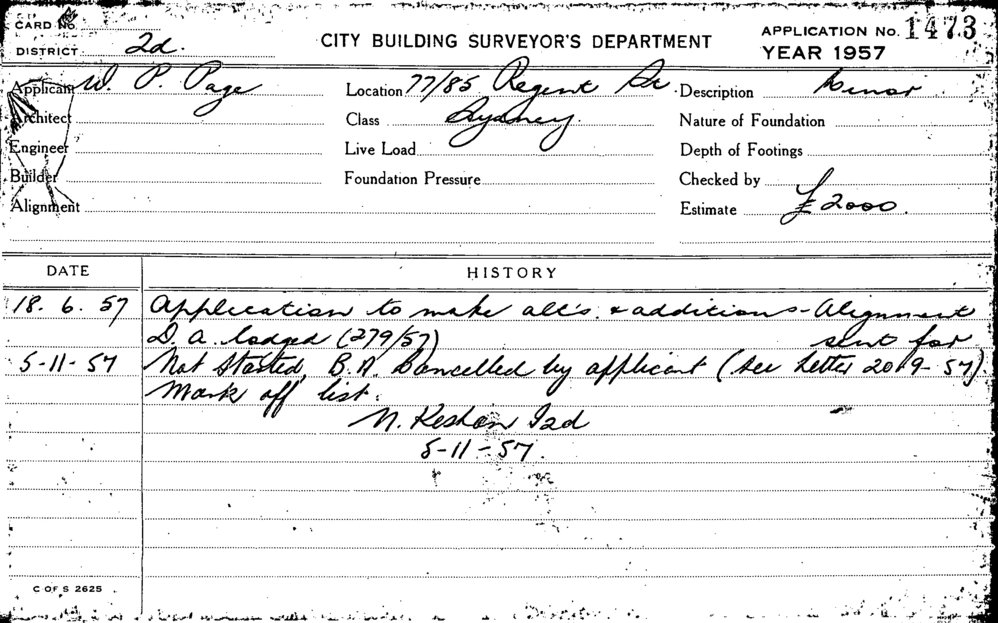 CARD No.
DISTRICT 2d.
CITY BUILDING SURVEYOR'S DEPARTMENT
APPLICATION No. 1473
YEAR 1957
Applicant W. P. Page
Location 77/85 Regent St.
Description Minor
Architect
Class Sydney.
Nature of Foundation
Engineer
Live Load
Depth of Footings
Builder
Foundation Pressure
Checked by
Alignment
Estimate £2000.
DATE HISTORY
18. 6. 57 Application to make alts. & additions - Alignment
D. A. lodged (279/57) sent for
5-11-57 Not Started, B.A. Cancelled by applicant (see Letter 20-9-57)
Mark off list.
N. Keshan I2d
5-11-57.
C OF S 2625